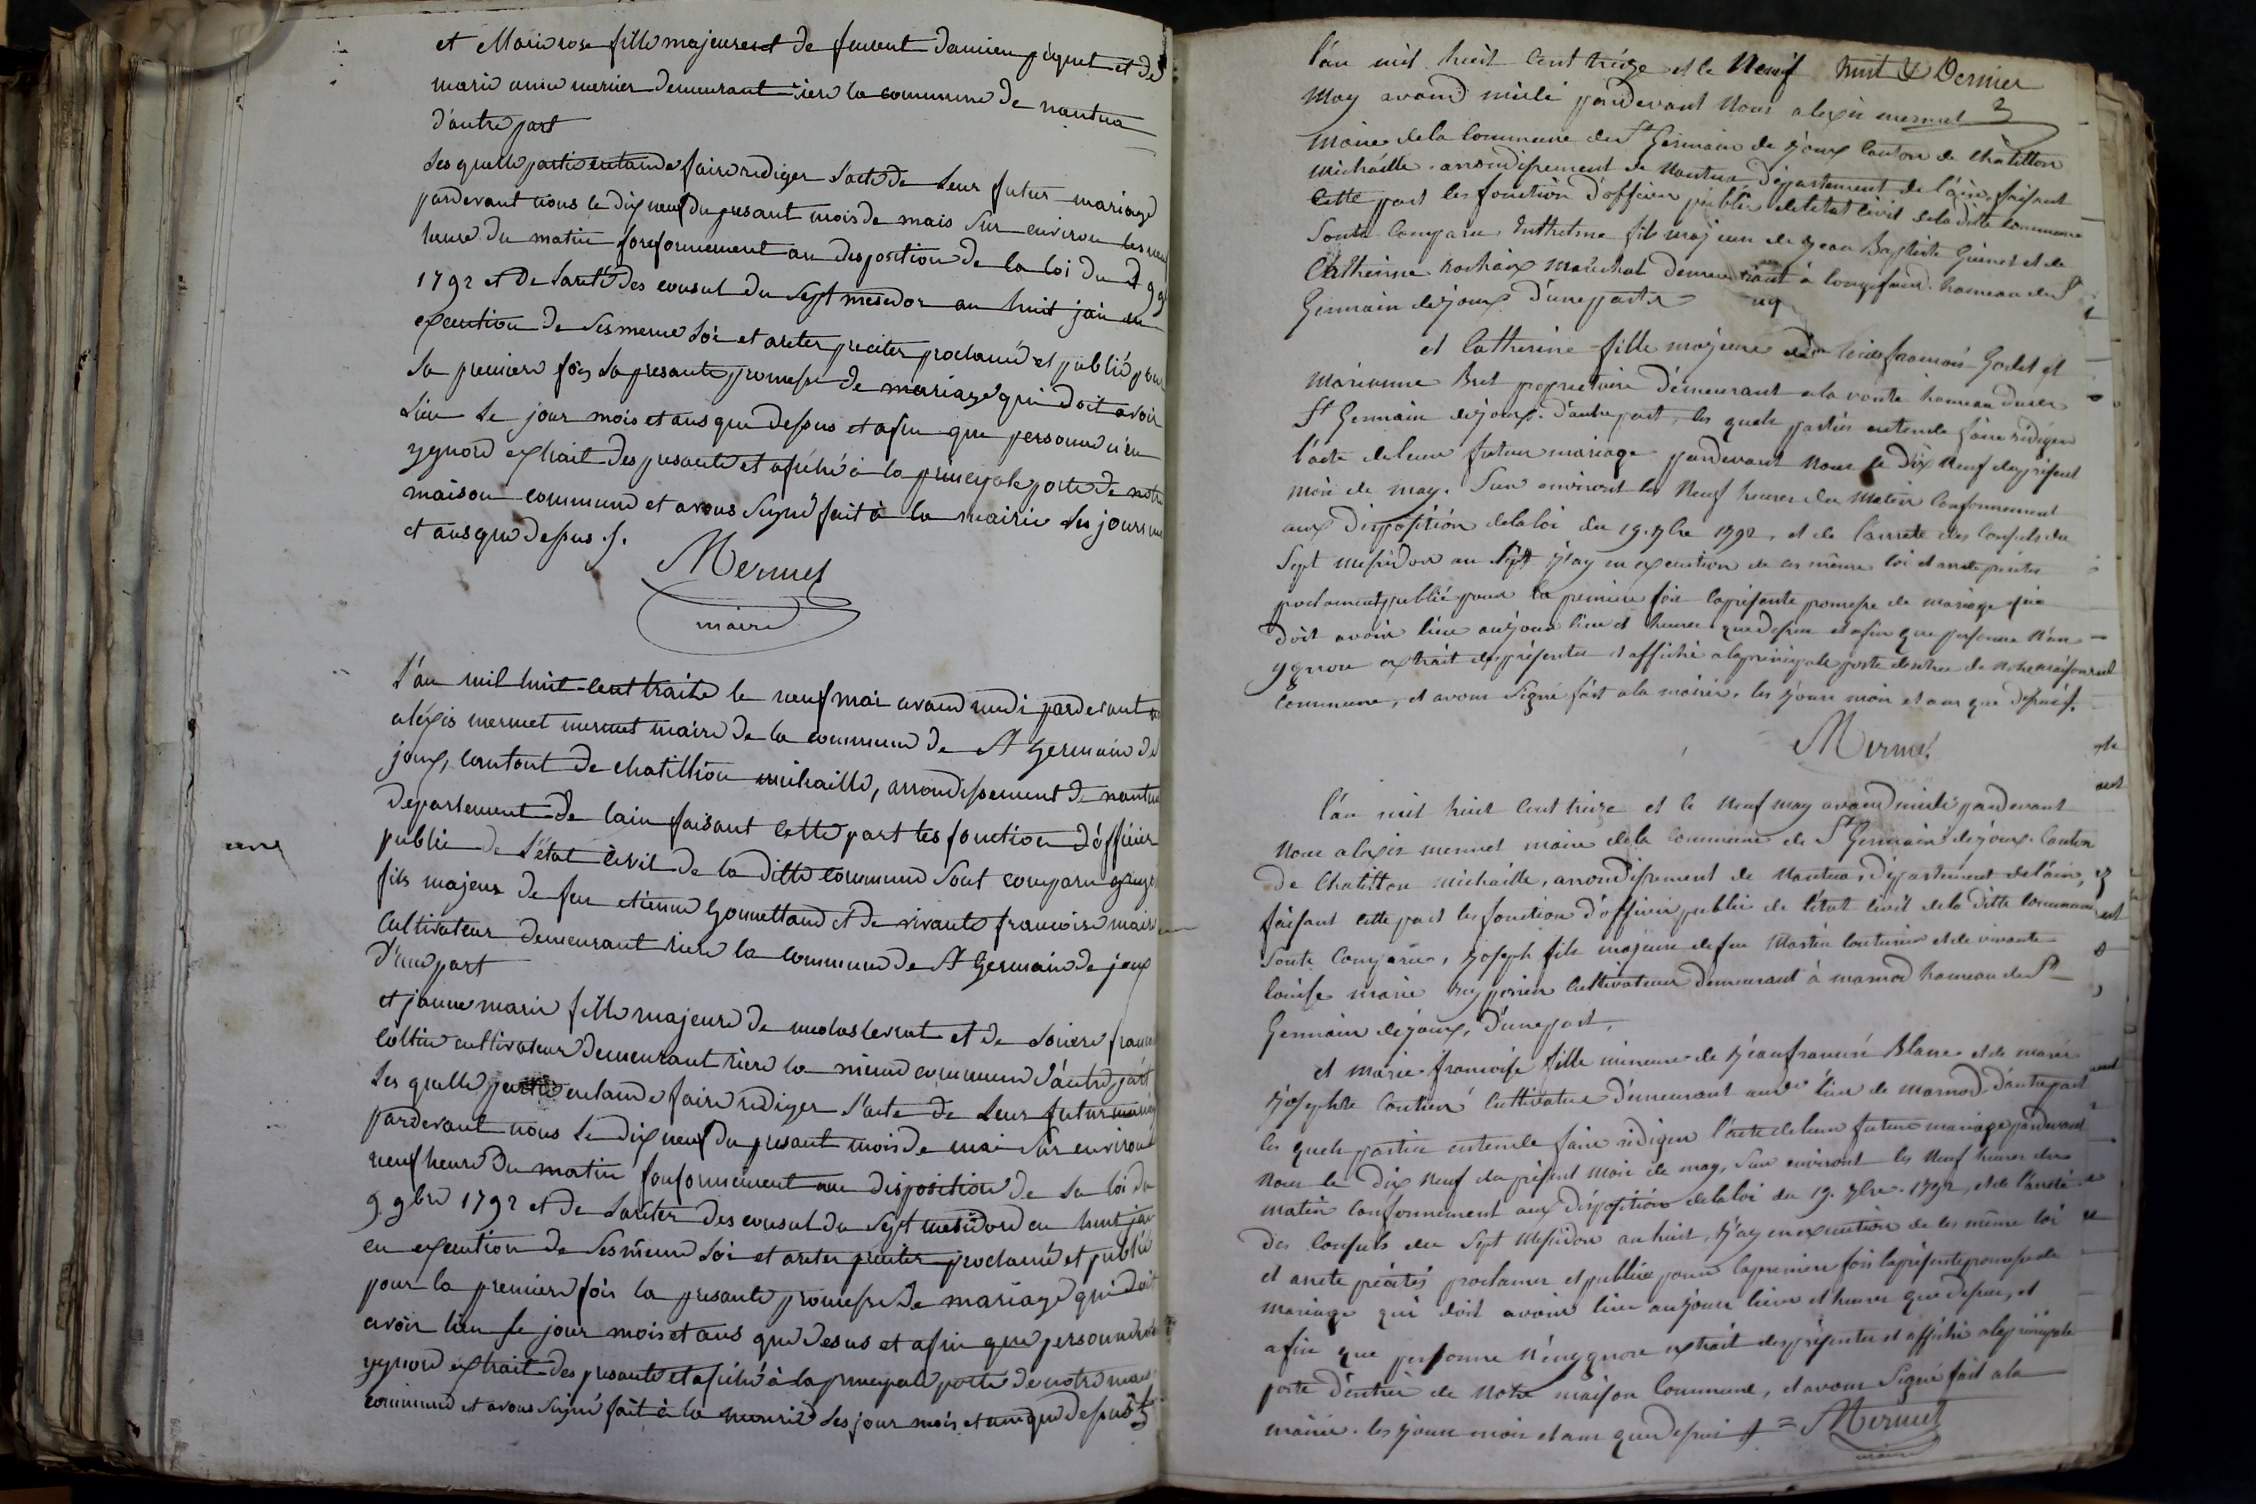 et Marie rose fille majeure et de fewent damien piquet et de
marie anne mernier demeurant riere la commune de nantua
d'autre part
Les quelle partie entande faire rediger l'acte de Leur futur mariage
pardevant nous le dix neuf du presant mois de mais Sur environ les neuf
heure du matin fonformement au disposition de la loi du
1792 et de l'areté des consul du Sept mesidor an huit jai en
execution de Ses meme Loi et areter preciter proclamé et publié pour
La premiere fois La presante promesse de mariage qui doit avoir
Lieu Le jour mois et ans que dessus et afin que personne n'en
ygnore extrait des presante et afiché à la principale porte de notre
maison commune et avons Signé fait à la mairie Les jours mois
et ans que dessus ./.
Mermet
maire
L'an mil huit cent traize le neuf mai avand midi pardevant nous
aléxis mermet mermet maire de la commune de St Germain de
joux, Cantont de chatillion michaille, arrondissement de nantua
departement de l'ain faisant Cette part les fonction d'officier
public de l'état Civil de la ditte Commune Sont comparu
fils majeur de feu etienne Gounettand et de vivante francoise mair
Cultivateur demeurant riere la commune de St Germain de joux
d'une part
et janne marie fille majeure de nicolas levrat et de
Cottin cultivateur demeurant riere la meme commune d'autre part
Les quelle partie entande faire rediger l'acte de Leur futur mariage
pardevant nous Le dix neuf du presant mois de mai Sur environ
neuf heure du matin fonformement au disposition de La loi du
9 9bre 1792 et de L'areter des consul du Sept mesidore en huit jai
en execution de Ses meme Loi et areter preciter proclamé et publié
pour la premiere fois la presante promesse de mariage qui doit
avoir lieu Le jour mois et ans que desus et afin que personne n'en
ygnore extrait des presante et afiché à la principale porte de notre maison
commune et avons Signé fait à la mairie Les jour mois et ans que dessus
L'an mil huit Cent treize et le Neuf huit & Dernier
May avand midi pardevant Nous alexis mermet
maire de la Commune de St Germain de joux Canton de Chatillon
michaille arrondissement de Nantua département de l'ain, faisant
Cette part les fonction d'officier public de l'etat Civil de la ditte Commune
Sont Comparu, Enthelme fils majeur de jean Baptiste Guinet et de
Catherine rochaix maréchal demeurant à longefand hameau de St
Germain de joux d'une part
et Catherine fille majeure de francois Godet et
Marianne Bret proprietaire demeurant a la voute hameau du
St Germain de joux d'autre part, les quels parties entende faire rédiger
l'acte de leur futur mariage pardevant Nous le Dix Neuf du présent
mois de may. Sur environt les Neuf heures du Matin Conformement
aux Disposition de la loi du 19. 7bre 1792, et de l'arrete des Consuls du
Sept messidor an Sept j'ay en execution de ces même loi et arrete précités
proclamer et publié pour la premiere fois la présente promesse de mariage qui
Doit avoir lieu aujour lieu et heures que dessus et afin que personne n'en
ygnore extrait des présentes et affiché a la principale porte d'entrée de Notre maison
Commune, et avons Signé fait a la mairie, les jours mois et ans que dessus ./.
Mermet
L'an mil huit Cent treize et le Neuf may avand midi pardevant
Nous alexis mermet maire de la Commune de St Germain de joux Canton
De Chatillon michaille, arrondissement de Nantua, département de l'ain,
faisant Cette part les fonction d'officier public de l'état Civil de la Ditte Commune
Sont Comparu, joseph fils majeur de feu Martin Couturier et de vivante
Louise marie cultivateur demeurant à marnod hameau de St
Germain de joux, d'une part,
et marie francoise fille mineure de jean francois Blanc et de marie
josephte Coutier cultivateur demeurant au dt lieu de marnod d'autre part
les quels parties entende faire rédiger l'acte de leur futur mariage pardevant
Nous le Dix Neuf du présent mois de may, Sur environt les Neuf heures du
matin Conformement aux Disposition de la loi du 19. 7bre. 1792, et de l'arrete
Des Consuls du Sept Messidor an huit, j'ay en execution de ces même loi
et arrete précités proclamer et publiée pour la premiere fois la présente promesse de
mariage qui doit avoir lieu aujour lieu et heures que dessus, et
afin que personne N'en ygnore extrait des présentes et affiché a la principale
porte d'entrée de Notre maison Commune, et avons Signé fait a la
mairie. les jours mois et ans que dessus = Mermet
maire